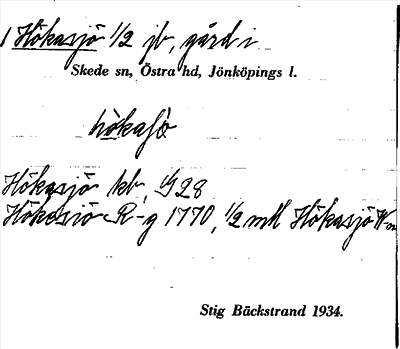 1 Hökasjö 1/2 jb, gård i
Skede sn, Östra hd, Jönköpings l.
hökasjö
Hökasjö kb,
Hökasjö R-g 1770, 1/2 mtl Hökasjö
Stig Bäckstrand 1934.